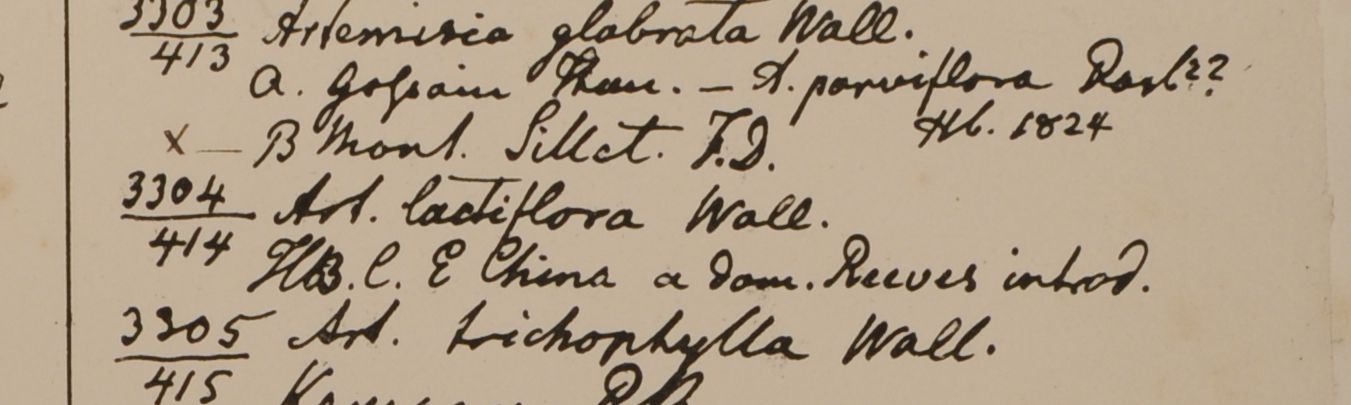 3303 Artemisia glabrata Wall.
413
a. Gossain Than. – A. parviflora Roxb??
Hb. 1824
x — B Mont. Sillet. F.D.
3304 Art. lactiflora Wall.
414
HB. C. E China a dom. Reeves introd.
3305 Art. trichophylla Wall.
415